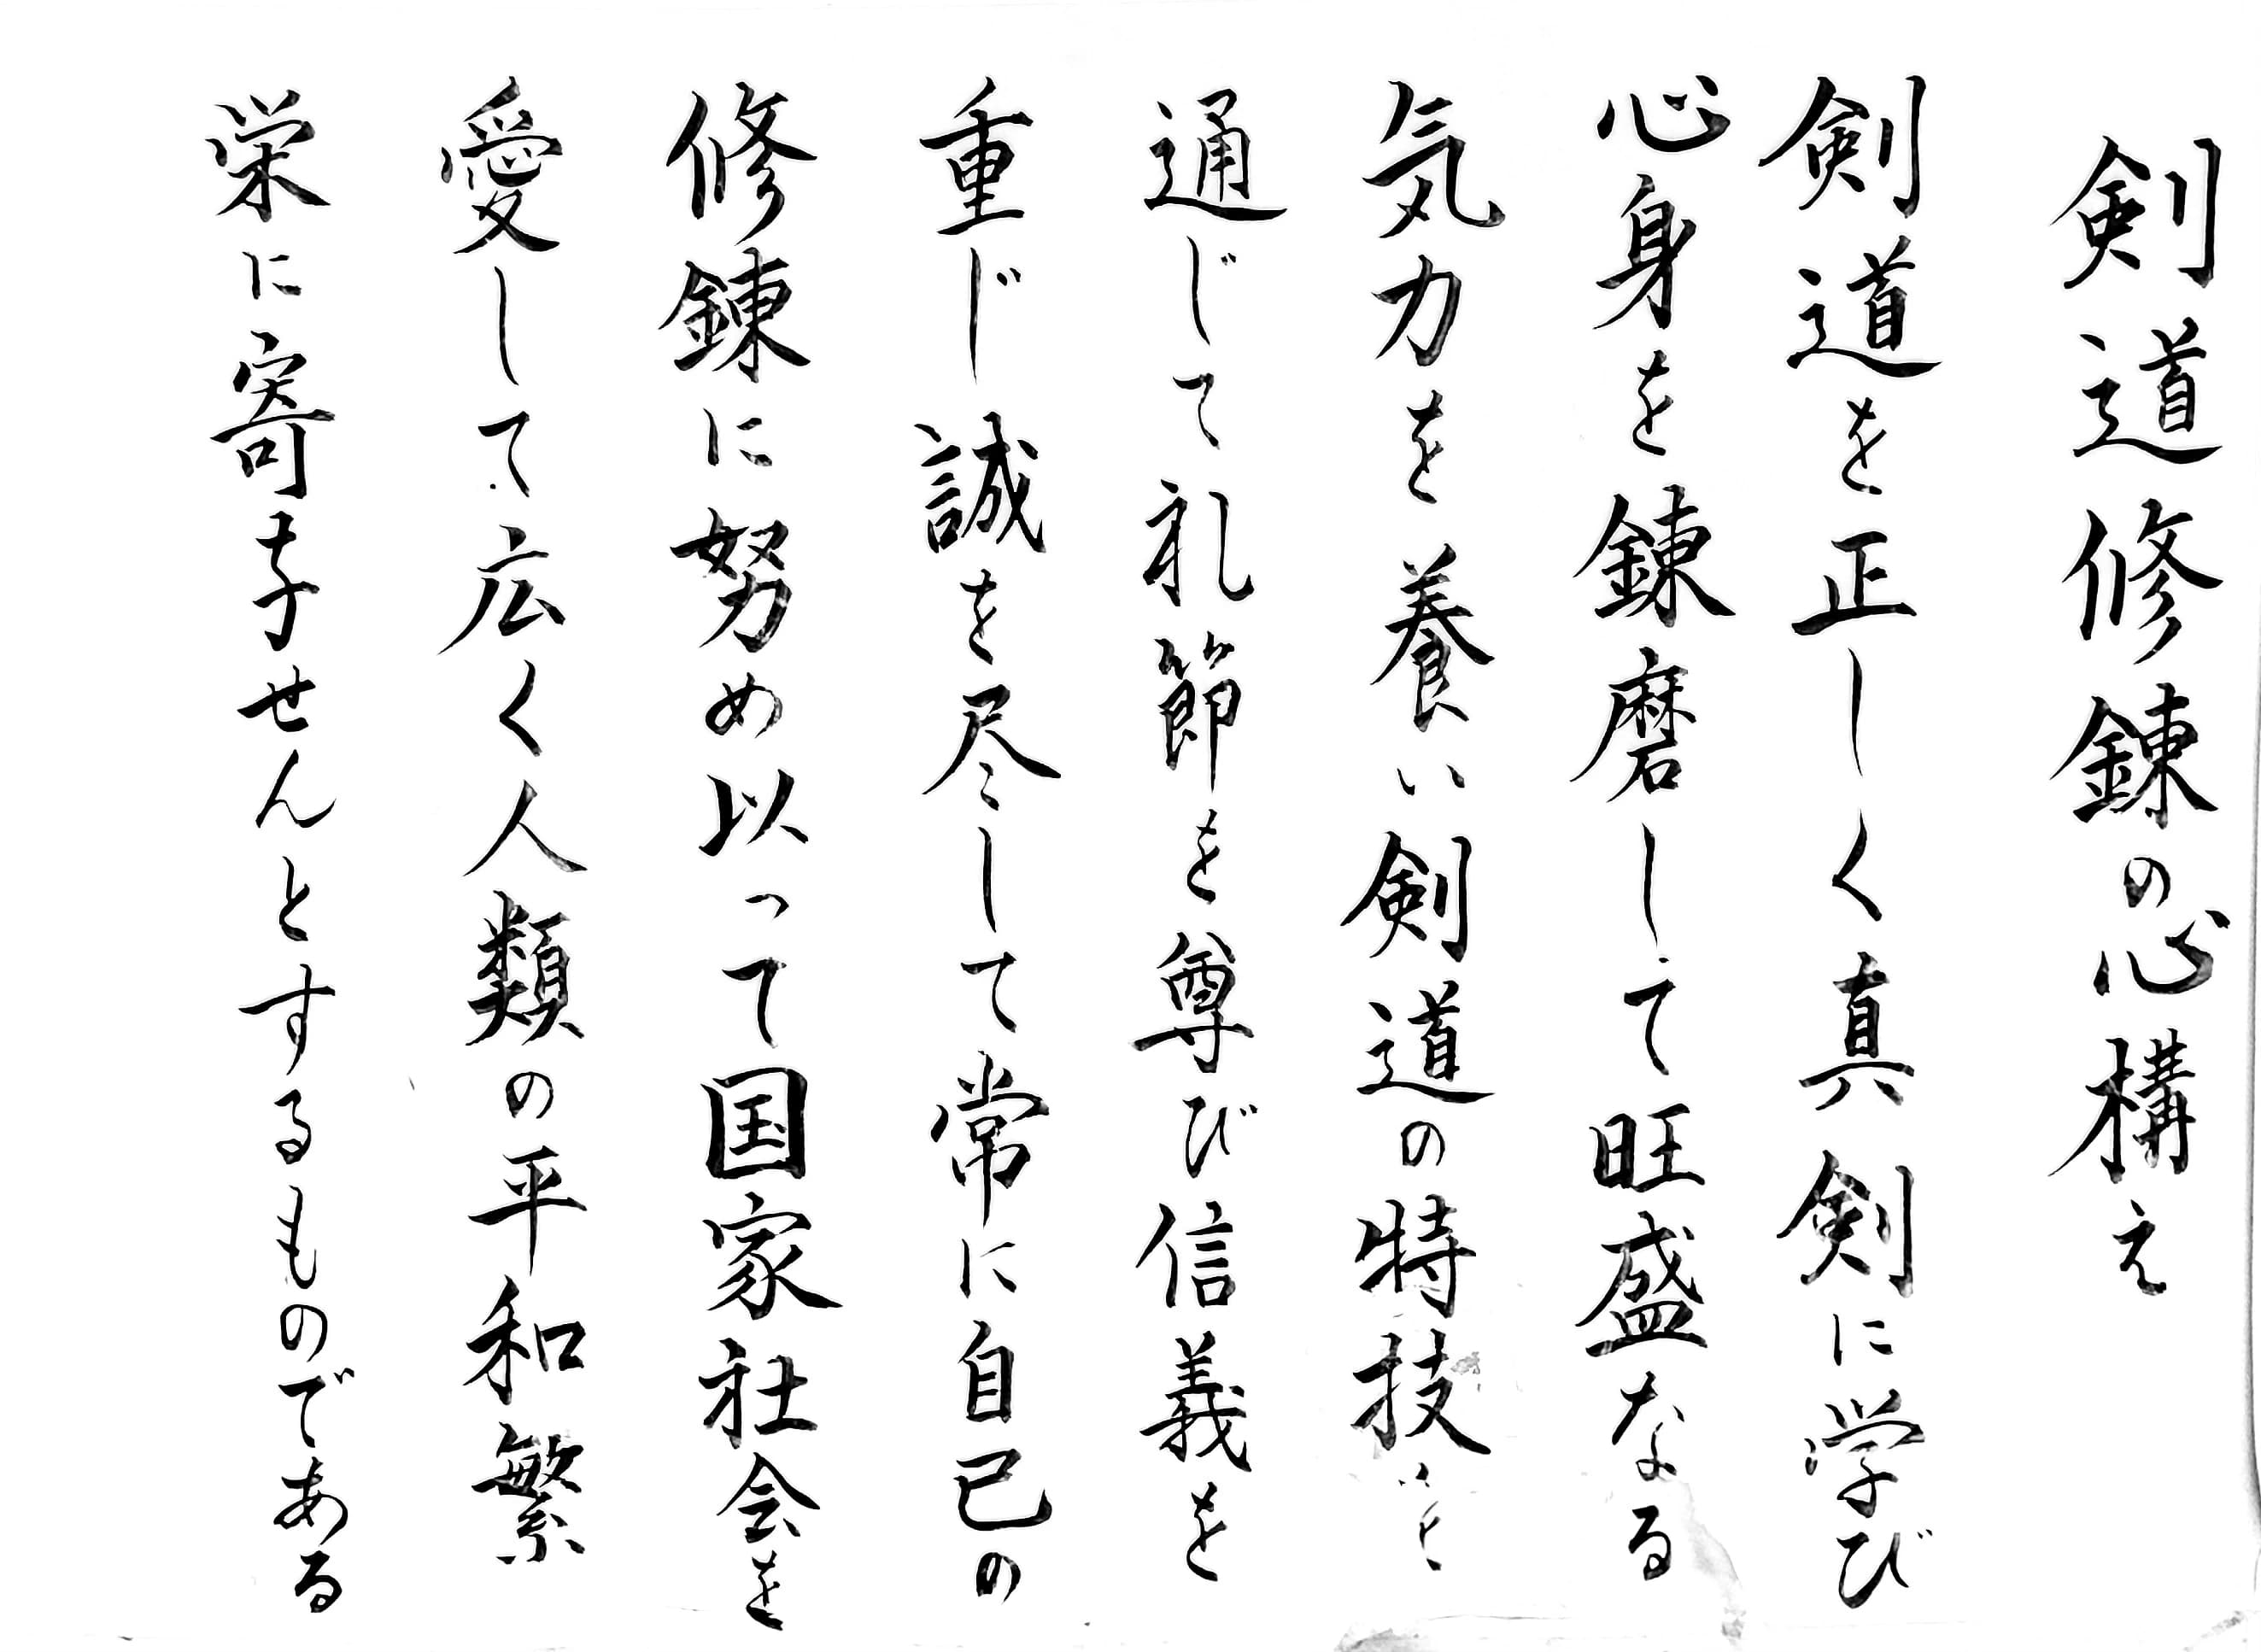 剣道修錬の心構え
剣道を正しく真剣に学び
心身を錬磨して旺盛なる
気力を養い剣道の特技を
通じて礼節を尊び信義を
重じ誠を尽して常に自己の
修錬に努め以って国家社会を
愛して広く人類の平和繁
栄に寄与せんとするものである